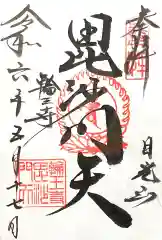 奉拝
日光山
毘沙門天
輪王寺
令和六年五月十七日